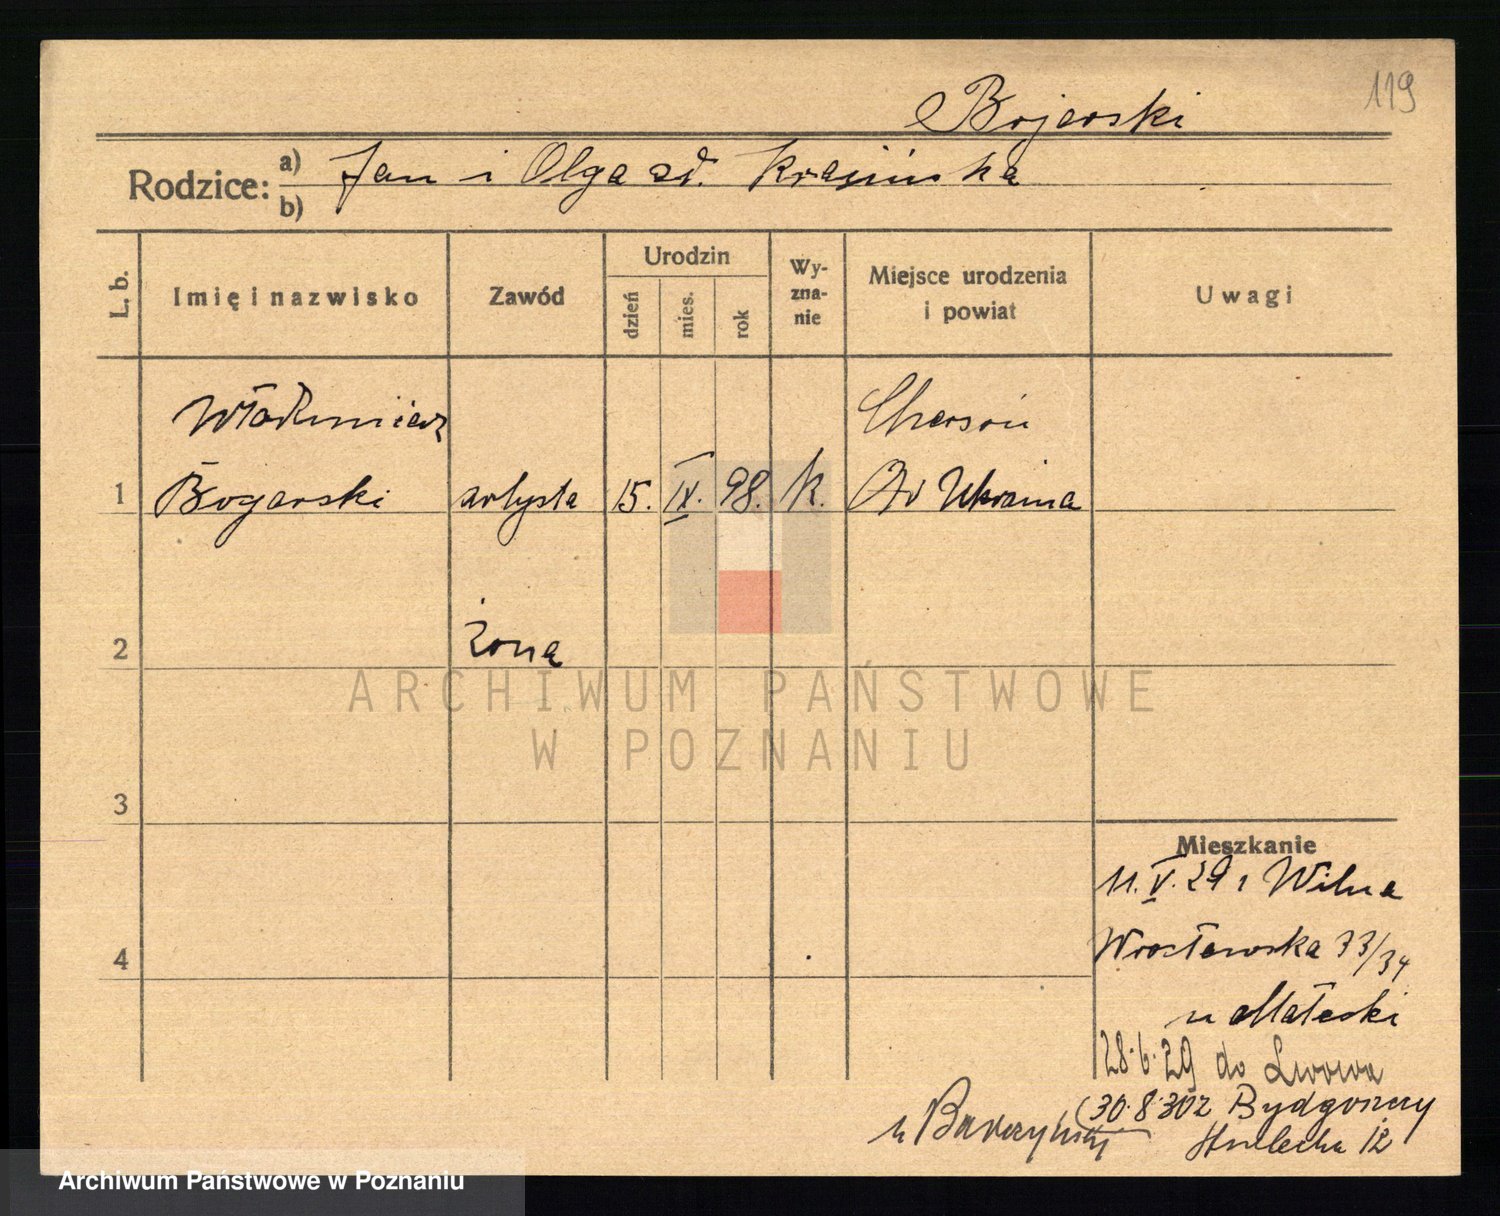 119
Bojarski
Rodzice: a) Jan i Olga zd. Krasińska
b)
L. b. Imię i nazwisko Zawód Urodzin dzień mies. rok Wyznanie Miejsce urodzenia i powiat Uwagi
Włodzimierz Chersoń
1 Bogarski artysta 15. IX. 98. k. Ukraina
2 żona
3
4
Mieszkanie
11. V. 29 z Wilna
Wrocławska 33/34
u Małeski
28.6.29 do Lwowa
30.8.30 z Bydgoszczy
u Barczyński 12
ARCHIWUM PAŃSTWOWE
W POZNANIU
Archiwum Państwowe w Poznaniu